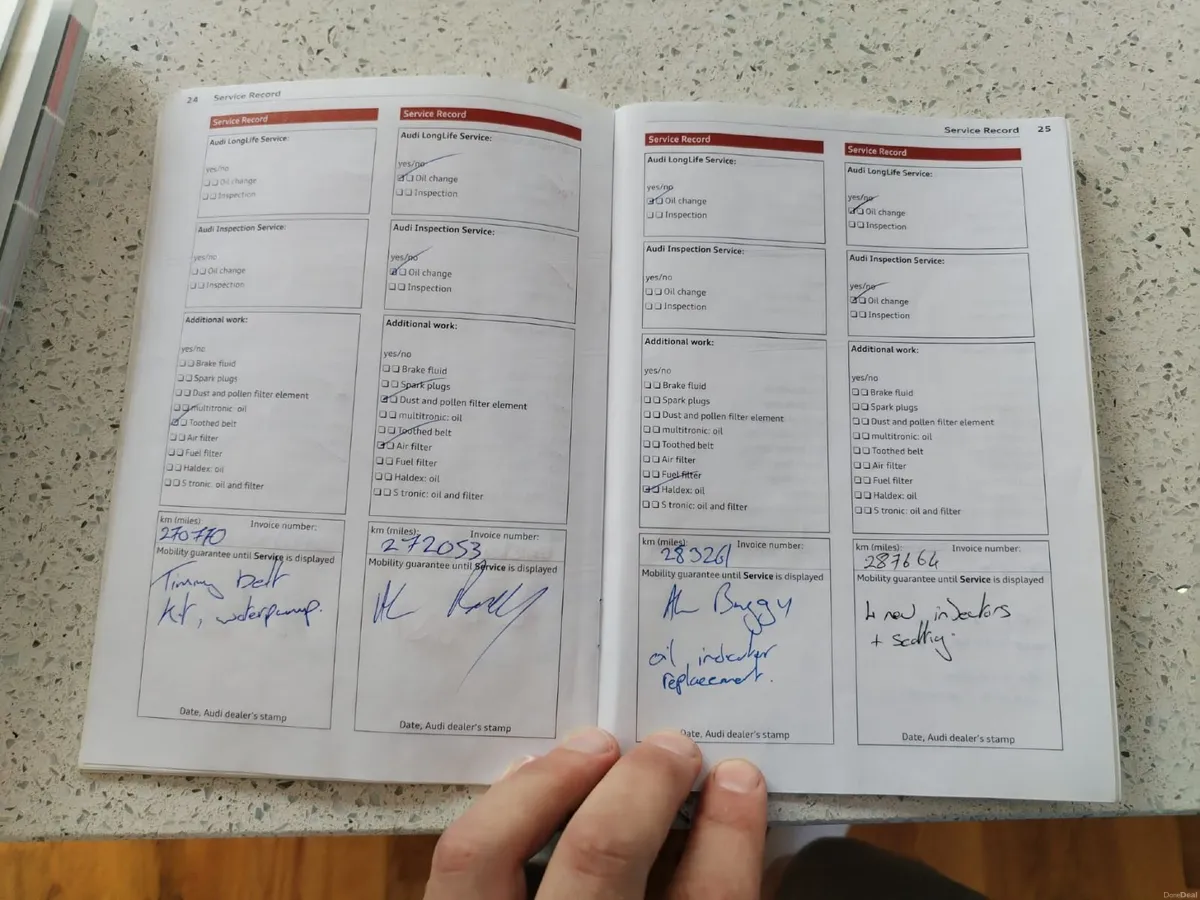 24 Service Record
Service Record
Audi LongLife Service:
yes/no
Oil change
Inspection
Audi Inspection Service:
yes/no
Oil change
Inspection
Additional work:
yes/no
Brake fluid
Spark plugs
Dust and pollen filter element
multitronic: oil
Toothed belt
Air filter
Fuel filter
Haldex: oil
S tronic: oil and filter
km (miles): Invoice number:
270770
Mobility guarantee until Service is displayed
Timmy belt
kit, waterpump.
Date, Audi dealer's stamp
Service Record
Audi LongLife Service:
yes/no
Oil change
Inspection
Audi Inspection Service:
yes/no
Oil change
Inspection
Additional work:
yes/no
Brake fluid
Spark plugs
Dust and pollen filter element
multitronic: oil
Toothed belt
Air filter
Fuel filter
Haldex: oil
S tronic: oil and filter
km (miles): Invoice number:
272053
Mobility guarantee until Service is displayed
Date, Audi dealer's stamp
Service Record 25
Service Record
Audi LongLife Service:
yes/no
Oil change
Inspection
Audi Inspection Service:
yes/no
Oil change
Inspection
Additional work:
yes/no
Brake fluid
Spark plugs
Dust and pollen filter element
multitronic: oil
Toothed belt
Air filter
Fuel filter
Haldex: oil
S tronic: oil and filter
km (miles): Invoice number:
283261
Mobility guarantee until Service is displayed
oil indicator
replacement.
Date, Audi dealer's stamp
Service Record
Audi LongLife Service:
yes/no
Oil change
Inspection
Audi Inspection Service:
yes/no
Oil change
Inspection
Additional work:
yes/no
Brake fluid
Spark plugs
Dust and pollen filter element
multitronic: oil
Toothed belt
Air filter
Fuel filter
Haldex: oil
S tronic: oil and filter
km (miles): Invoice number:
287664
Mobility guarantee until Service is displayed
4 new injectors
+
Date, Audi dealer's stamp
DoneDeal